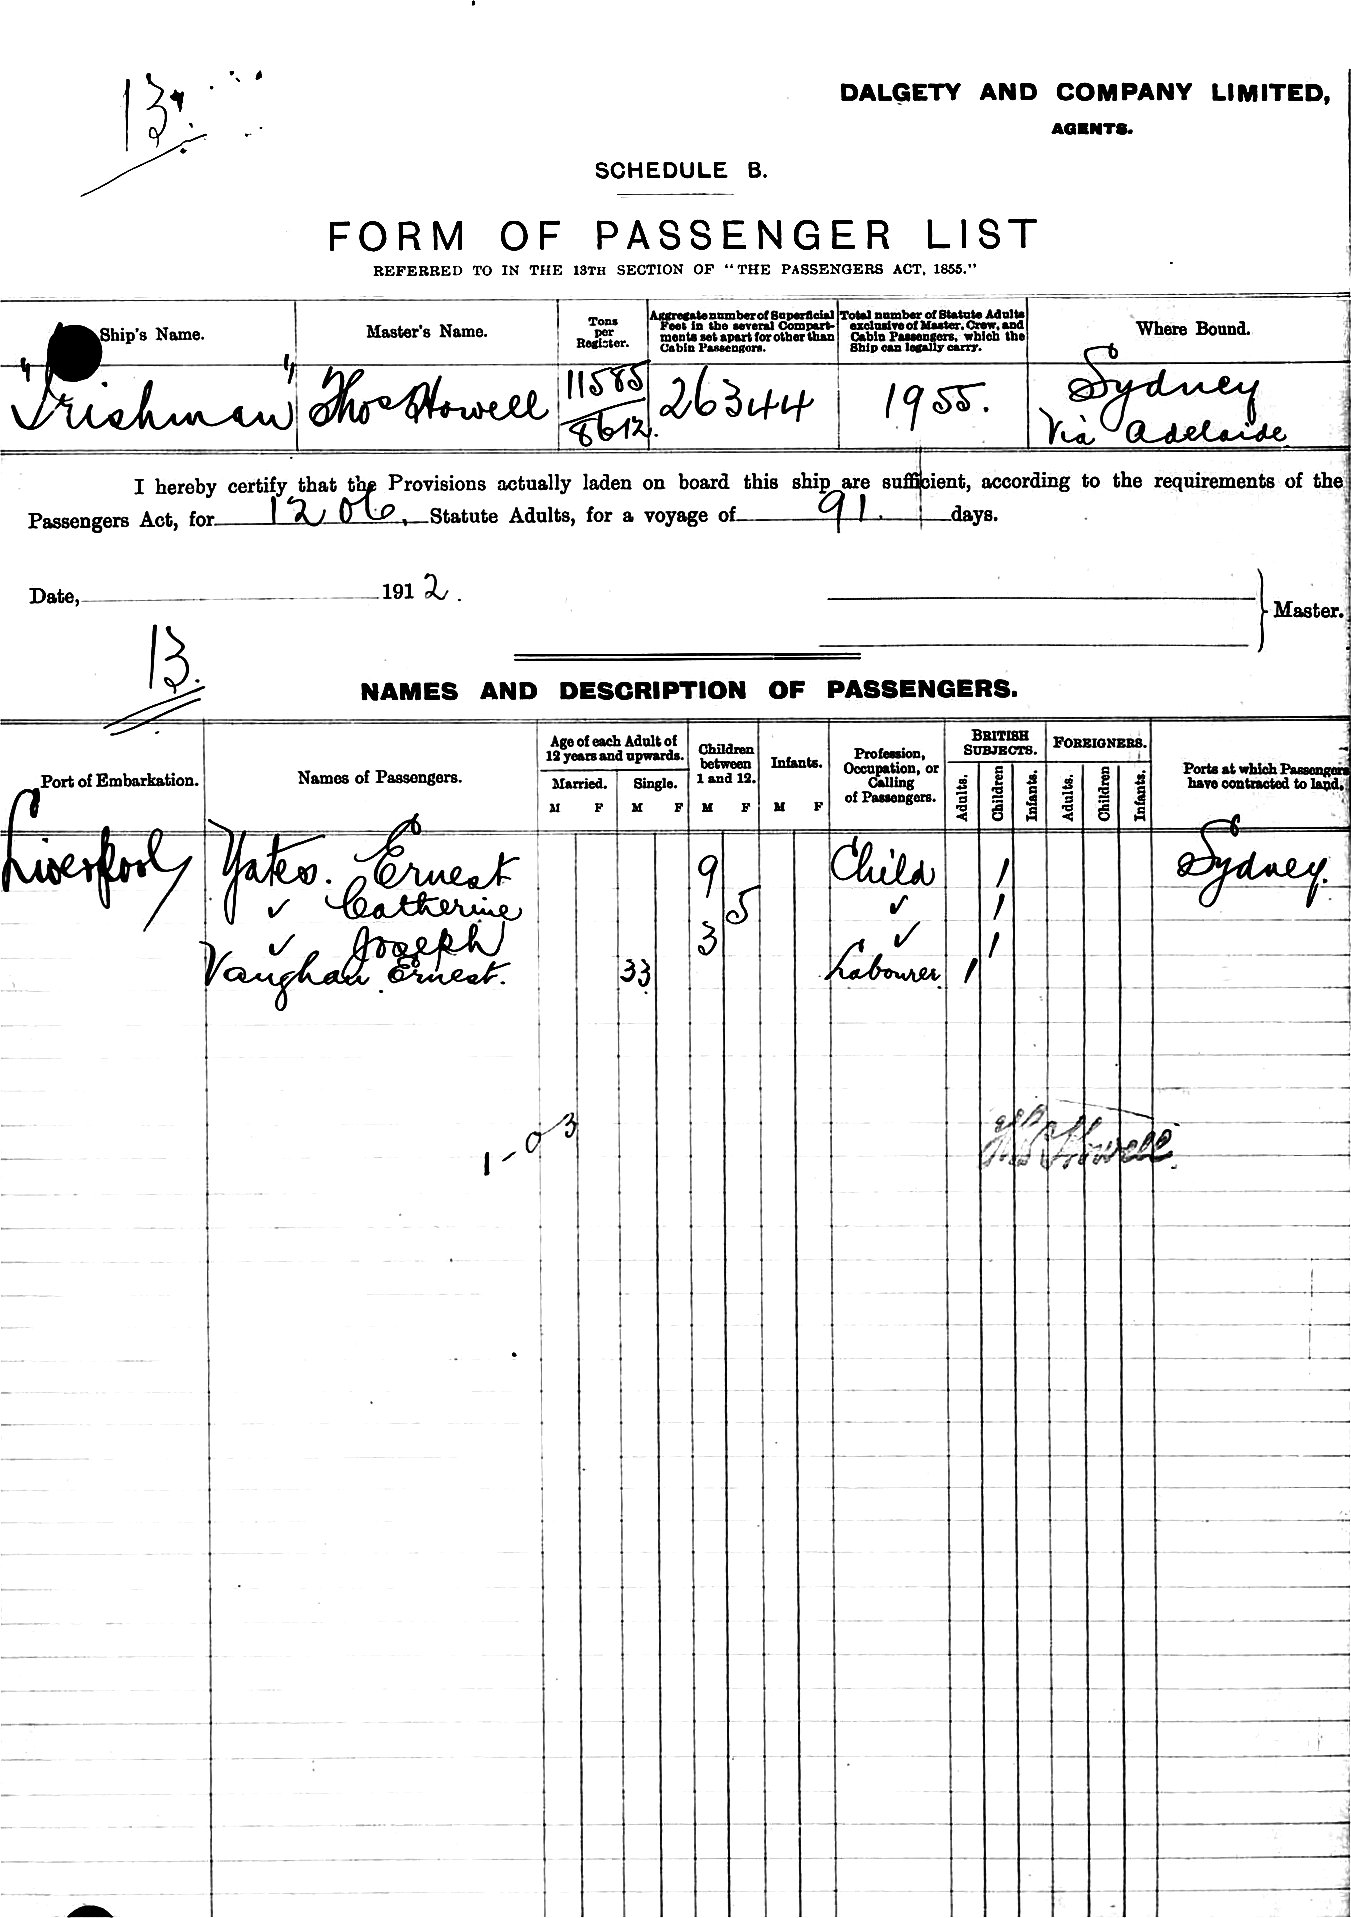 13.
DALGETY AND COMPANY LIMITED,
AGENTS.
SCHEDULE B.
FORM OF PASSENGER LIST
REFERRED TO IN THE 13TH SECTION OF "THE PASSENGERS ACT, 1855."
Ship's Name. Master's Name. Tons per Register. Aggregate number of Superficial Feet in the several Compartments set apart for other than Cabin Passengers. Total number of Statute Adults exclusive of Master, Crew, and Cabin Passengers, which the Ship can legally carry. Where Bound.
"Irishman" Thos Howell 11585 / 8612. 26344 1955. Sydney Via Adelaide
I hereby certify that the Provisions actually laden on board this ship are sufficient, according to the requirements of the
Passengers Act, for 1206. Statute Adults, for a voyage of 91. days.
Date, 1912. Master.
13.
NAMES AND DESCRIPTION OF PASSENGERS.
Port of Embarkation. Names of Passengers. Age of each Adult of 12 years and upwards. Married. M F Single. M F Children between 1 and 12. M F Infants. M F Profession, Occupation, or Calling of Passengers. BRITISH SUBJECTS. Adults. Children Infants. FOREIGNERS. Adults. Children Infants. Ports at which Passengers have contracted to land.
Liverpool Yates. Ernest 9 Child 1 Sydney.
✓ Catherine 5 ✓ 1
✓ Joseph 3 ✓ 1
Vaughan Ernest. 33 Labourer. 1
1-03
Thos Howell.